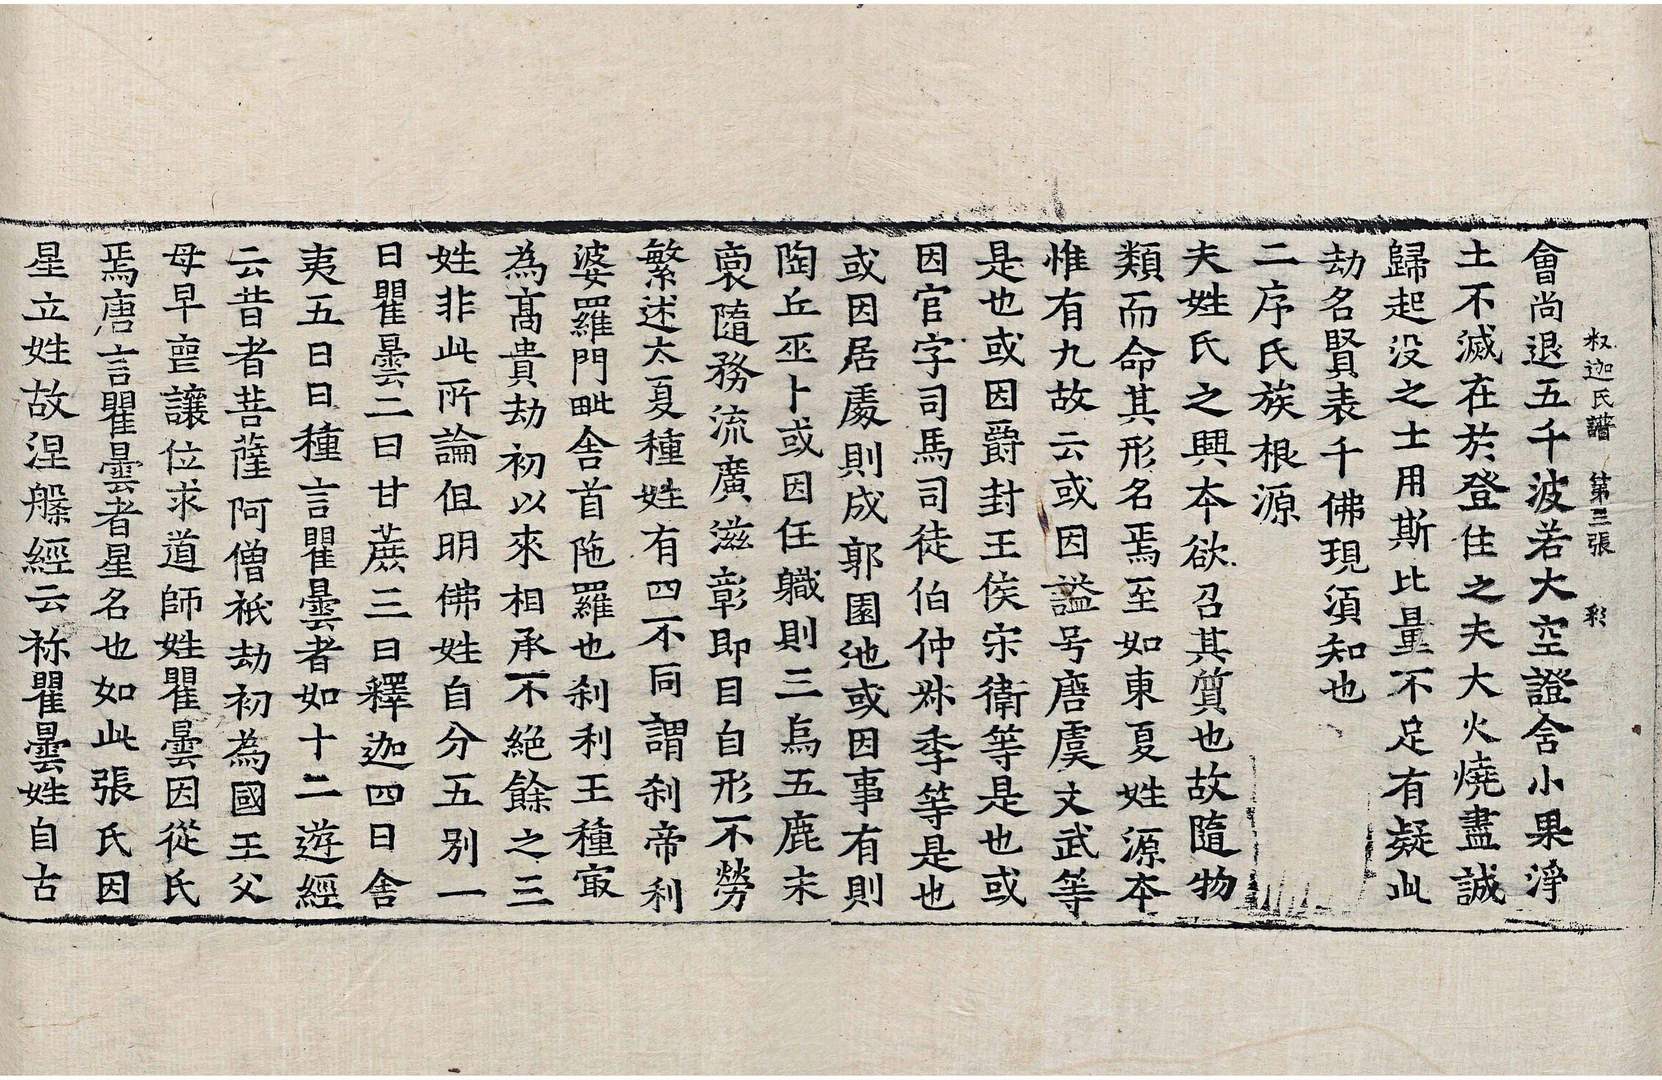 釈迦氏譜 第三張 彩
會尚退五千波若大空證舍小果淨
土不滅在於登住之夫大火燒盡誠
歸起没之士用斯比量不足有疑此
劫名賢表千佛現須知也
二序氏族根源
夫姓氏之興本欲召其質也故隨物
類而命其形名焉至如東夏姓源本
惟有九故云或因謚号唐虞文武等
是也或因爵封王侯宋衛等是也或
因官字司馬司徒伯仲叔季等是也
或因居處則成郭園池或因事有則
陶丘巫卜或因任職則三烏五鹿末
裔隨務流廣滋彰即目自形不勞
繁述太夏種姓有四不同謂刹帝利
婆羅門毗舍首陁羅也刹利王種㝡
為高貴劫初以來相承不絕餘之三
姓非此所論但明佛姓自分五別一
曰瞿曇二曰甘蔗三曰釋迦四曰舍
夷五曰日種言瞿曇者如十二遊經
云昔者菩薩阿僧祇劫初為國王父
母早喪讓位求道師姓瞿曇因從氏
焉唐言瞿曇者星名也如此張氏因
星立姓故涅槃經云祢瞿曇姓自古